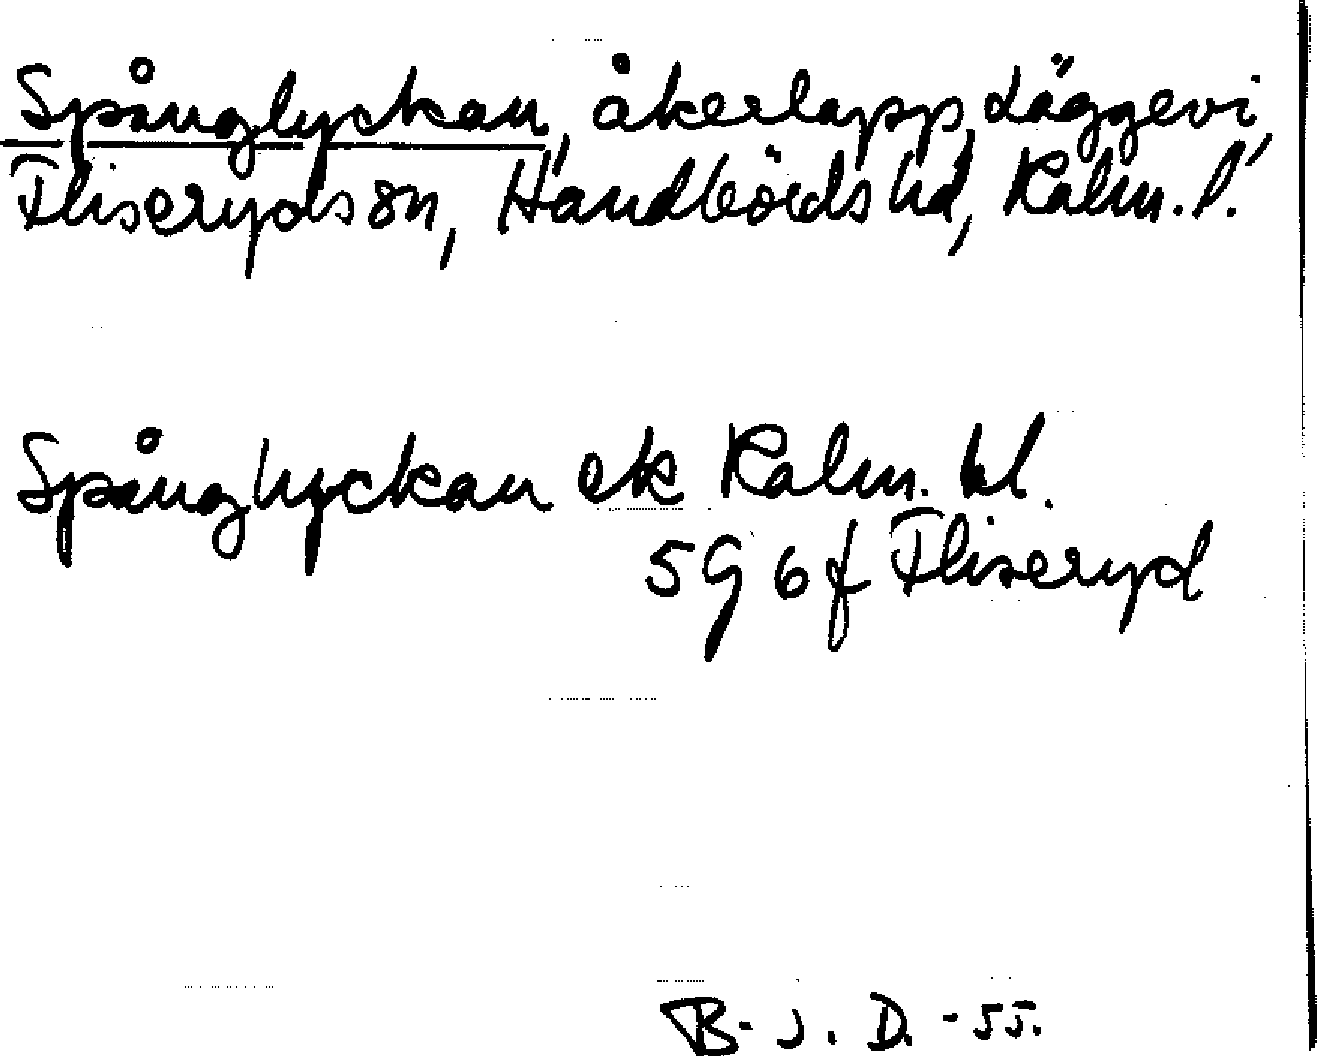 Spånglyckan, åkerlapp, Läggevi,
Fliseryds sn, Handbörds hd, Kalm. l.
Spånglyckan ek Kalm. bl.
5G 6f Fliseryd
B-J. D. -55.